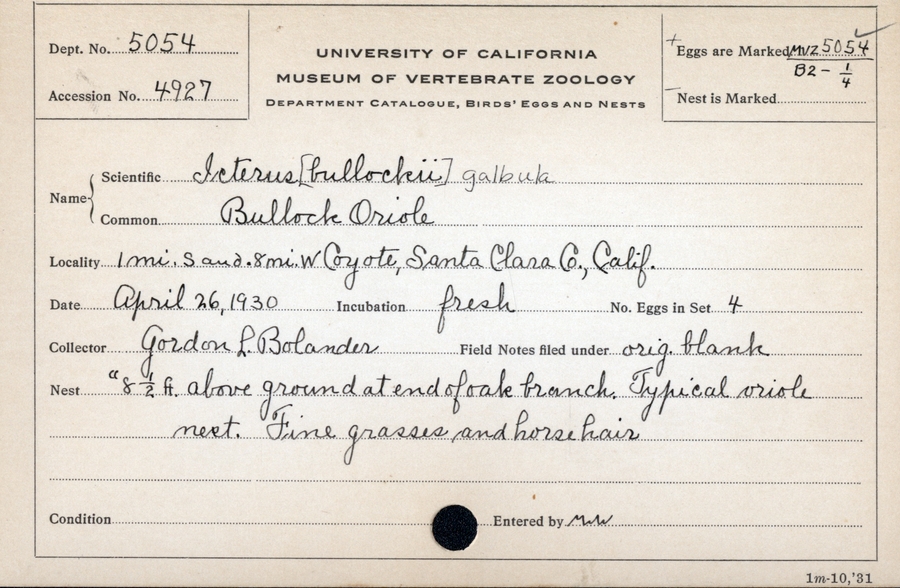 Dept. No. 5054
Accession No. 4927
UNIVERSITY OF CALIFORNIA
MUSEUM OF VERTEBRATE ZOOLOGY
DEPARTMENT CATALOGUE, BIRDS' EGGS AND NESTS
+ Eggs are Marked MVZ 5054
B2 - 1/4
- Nest is Marked
Name
Scientific Icterus [bullockii] galbula
Common Bullock Oriole
Locality 1 mi. S and .8 mi. W Coyote, Santa Clara Co., Calif.
Date April 26, 1930 Incubation fresh No. Eggs in Set 4
Collector Gordon L. Bolander Field Notes filed under orig. blank
Nest "8 1/2 ft. above ground at end of oak branch. Typical oriole
nest. Fine grasses and horsehair
Condition Entered by
1m-10,'31